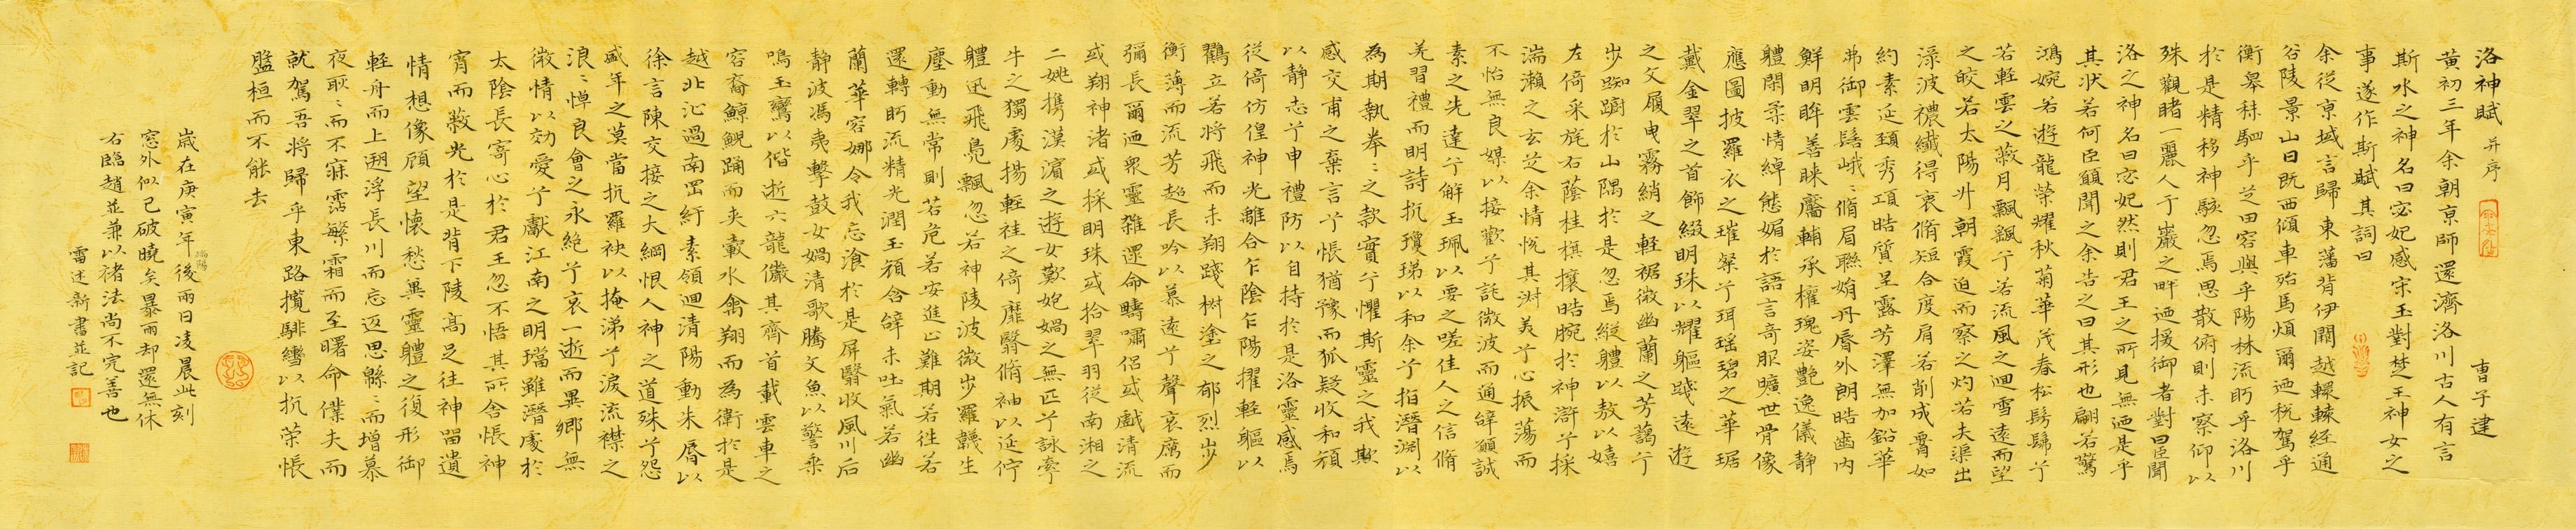 洛神賦 并序 曹子建
黃初三年余朝京師還濟洛川古人有言
斯水之神名曰宓妃感宋玉對楚王神女之
事遂作斯賦其詞曰
余從京域言歸東藩背伊闕越轘轅經通
谷陵景山日既西傾車殆馬煩爾迺稅駕乎
衡皋秣駟乎芝田容與乎陽林流眄乎洛川
於是精移神駭忽焉思散俯則未察仰以
殊觀睹一麗人于巖之畔迺援御者對曰臣聞
洛之神名曰宓妃然則君王之所見無迺是乎
其狀若何臣願聞之余告之曰其形也翩若驚
鴻婉若遊龍榮耀秋菊華茂春松髣髴兮
若輕雲之蔽月飄飄兮若流風之迴雪遠而望
之皎若太陽升朝霞迫而察之灼若夫渠出
淥波穠纖得衷脩短合度肩若削成腰如
約素延頸秀項皓質呈露芳澤無加鉛華
弗御雲髻峨〻脩眉聯娟丹脣外朗皓齒內
鮮明眸善睞靨輔承權瑰姿艷逸儀靜
體閑柔情綽態媚於語言奇服曠世骨像
應圖披羅衣之璀粲兮珥瑤碧之華琚
戴金翠之首飾綴明珠以耀軀踐遠遊
之文履曳霧綃之輕裾微幽蘭之芳藹兮
步踟躕於山隅於是忽焉縱體以敖以嬉
左倚采旄右蔭桂旗攘皓腕於神滸兮採
湍瀨之玄芝余情悅其淑美兮心振蕩而
不怡無良媒以接歡兮託微波而通辭願誠
素之先達兮解玉珮以要之嗟佳人之信脩
羌習禮而明詩抗瓊珶以和余兮指潛淵以
為期執拳〻之款實兮懼斯靈之我欺
感交甫之棄言兮悵猶豫而狐疑收和顏
以靜志兮申禮防以自持於是洛靈感焉
徙倚仿偟神光離合乍陰乍陽擢輕軀以
鶴立若將飛而未翔踐樹塗之郁烈步
衡薄而流芳超長吟以慕遠兮聲哀厲而
彌長爾迺眾靈雜遝命疇嘯侶或戲清流
或翔神渚或採明珠或拾翠羽從南湘之
二姚攜漢濱之遊女歎匏媧之無匹兮詠牽
牛之獨處揚輕袿之倚靡翳脩袖以延佇
體迅飛鳧飄忽若神陵波微步羅韈生
塵動無常則若危若安進止難期若往若
還轉眄流精光潤玉顏含辭未吐氣若幽
蘭華容婀娜令我忘飡於是屏翳收風川后
靜波馮夷擊鼓女媧清歌騰文魚以警乘
鳴玉鸞以偕逝六龍儼其齊首載雲車之
容裔鯨鯢踊而夾轂水禽翔而為衛於是
越北沚過南岡紆素領迴清陽動朱脣以
徐言陳交接之大綱恨人神之道殊兮怨
盛年之莫當抗羅袂以掩涕兮淚流襟之
浪〻悼良會之永絕兮哀一逝而異鄉無
微情以効愛兮獻江南之明璫雖潛處於
太陰長寄心於君王忽不悟其所舍悵神
宵而蔽光於是背下陵高足往神留遺
情想像顧望懷愁冀靈體之復形御
輕舟而上遡浮長川而忘返思緜〻而增慕
夜耿〻而不寐霑繁霜而至曙命僕夫而
就駕吾將歸乎東路攬騑轡以抗策悵
盤桓而不能去
歲在庚寅年端陽後兩日凌晨此刻
窓外似已破曉矣暴雨却還無休
右臨趙並兼以褚法尚不完善也
雷述新書並記